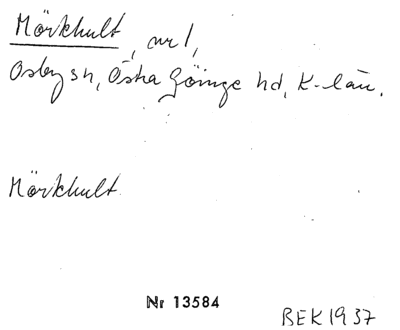 Mörkhult, nr 1,
Osby sn, Östra Göinge hd, K-län.
Mörkhult
Nr 13584
BEK 1937